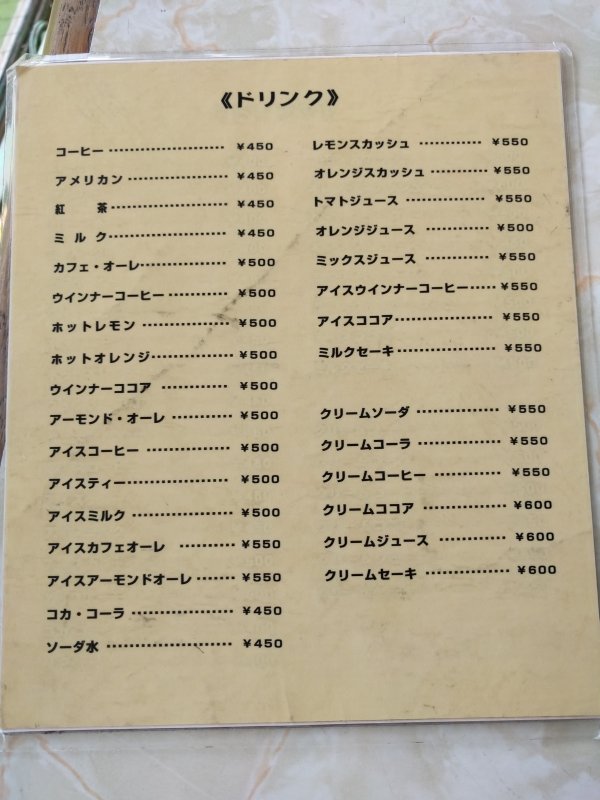 《ドリンク》
コーヒー ‥‥‥‥‥‥‥‥ ¥450
アメリカン ‥‥‥‥‥‥‥ ¥450
紅　　茶 ‥‥‥‥‥‥‥‥ ¥450
ミ ル ク ‥‥‥‥‥‥‥‥ ¥450
カフェ・オーレ ‥‥‥‥‥‥ ¥500
ウインナーコーヒー ‥‥‥‥ ¥500
ホットレモン ‥‥‥‥‥‥ ¥500
ホットオレンジ ‥‥‥‥‥‥ ¥500
ウインナーココア ‥‥‥‥‥ ¥500
アーモンド・オーレ ‥‥‥‥ ¥500
アイスコーヒー ‥‥‥‥‥‥ ¥500
アイスティー ‥‥‥‥‥‥‥ ¥500
アイスミルク ‥‥‥‥‥‥‥ ¥500
アイスカフェオーレ ‥‥‥‥ ¥550
アイスアーモンドオーレ ‥‥‥ ¥550
コカ・コーラ ‥‥‥‥‥‥‥ ¥450
ソーダ水 ‥‥‥‥‥‥‥‥‥ ¥450
レモンスカッシュ ‥‥‥‥‥ ¥550
オレンジスカッシュ ‥‥‥‥ ¥550
トマトジュース ‥‥‥‥‥‥ ¥550
オレンジジュース ‥‥‥‥‥ ¥500
ミックスジュース ‥‥‥‥‥ ¥550
アイスウインナーコーヒー ‥‥ ¥550
アイスココア ‥‥‥‥‥‥‥ ¥550
ミルクセーキ ‥‥‥‥‥‥‥ ¥550
クリームソーダ ‥‥‥‥‥‥ ¥550
クリームコーラ ‥‥‥‥‥‥ ¥550
クリームコーヒー ‥‥‥‥‥ ¥550
クリームココア ‥‥‥‥‥‥ ¥600
クリームジュース ‥‥‥‥‥ ¥600
クリームセーキ ‥‥‥‥‥‥ ¥600